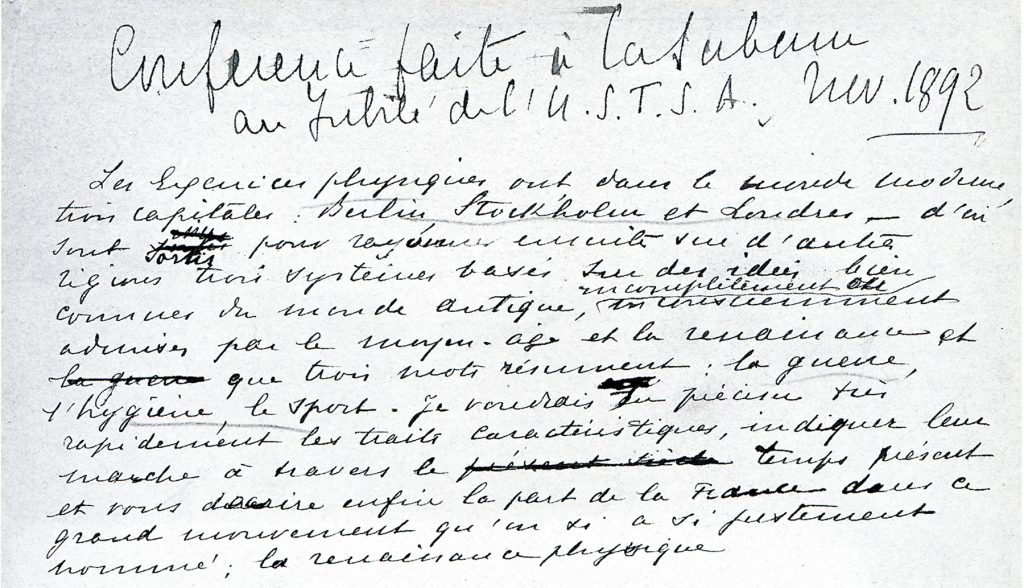 Conférence faite à la Sorbonne
au Jubilé de l'U.S.F.S.A. Nov. 1892
Les Exercices physiques ont dans le monde moderne
trois capitales : Berlin, Stockholm et Londres — d'où
sont sortis pour rayonner ensuite sur d'autres
régions trois systèmes basés sur des idées bien
incomplètement ou
connues du monde antique, inconsciemment
admises par le moyen-âge et la renaissance et
la guerre que trois mots résument : la guerre,
l'hygiène, le sport. Je voudrais en préciser très
rapidement les traits caractéristiques, indiquer leur
marche à travers le présent siècle temps présent
et vous décrire enfin la part de la France dans ce
grand mouvement qu'on a si justement
nommé : la renaissance physique